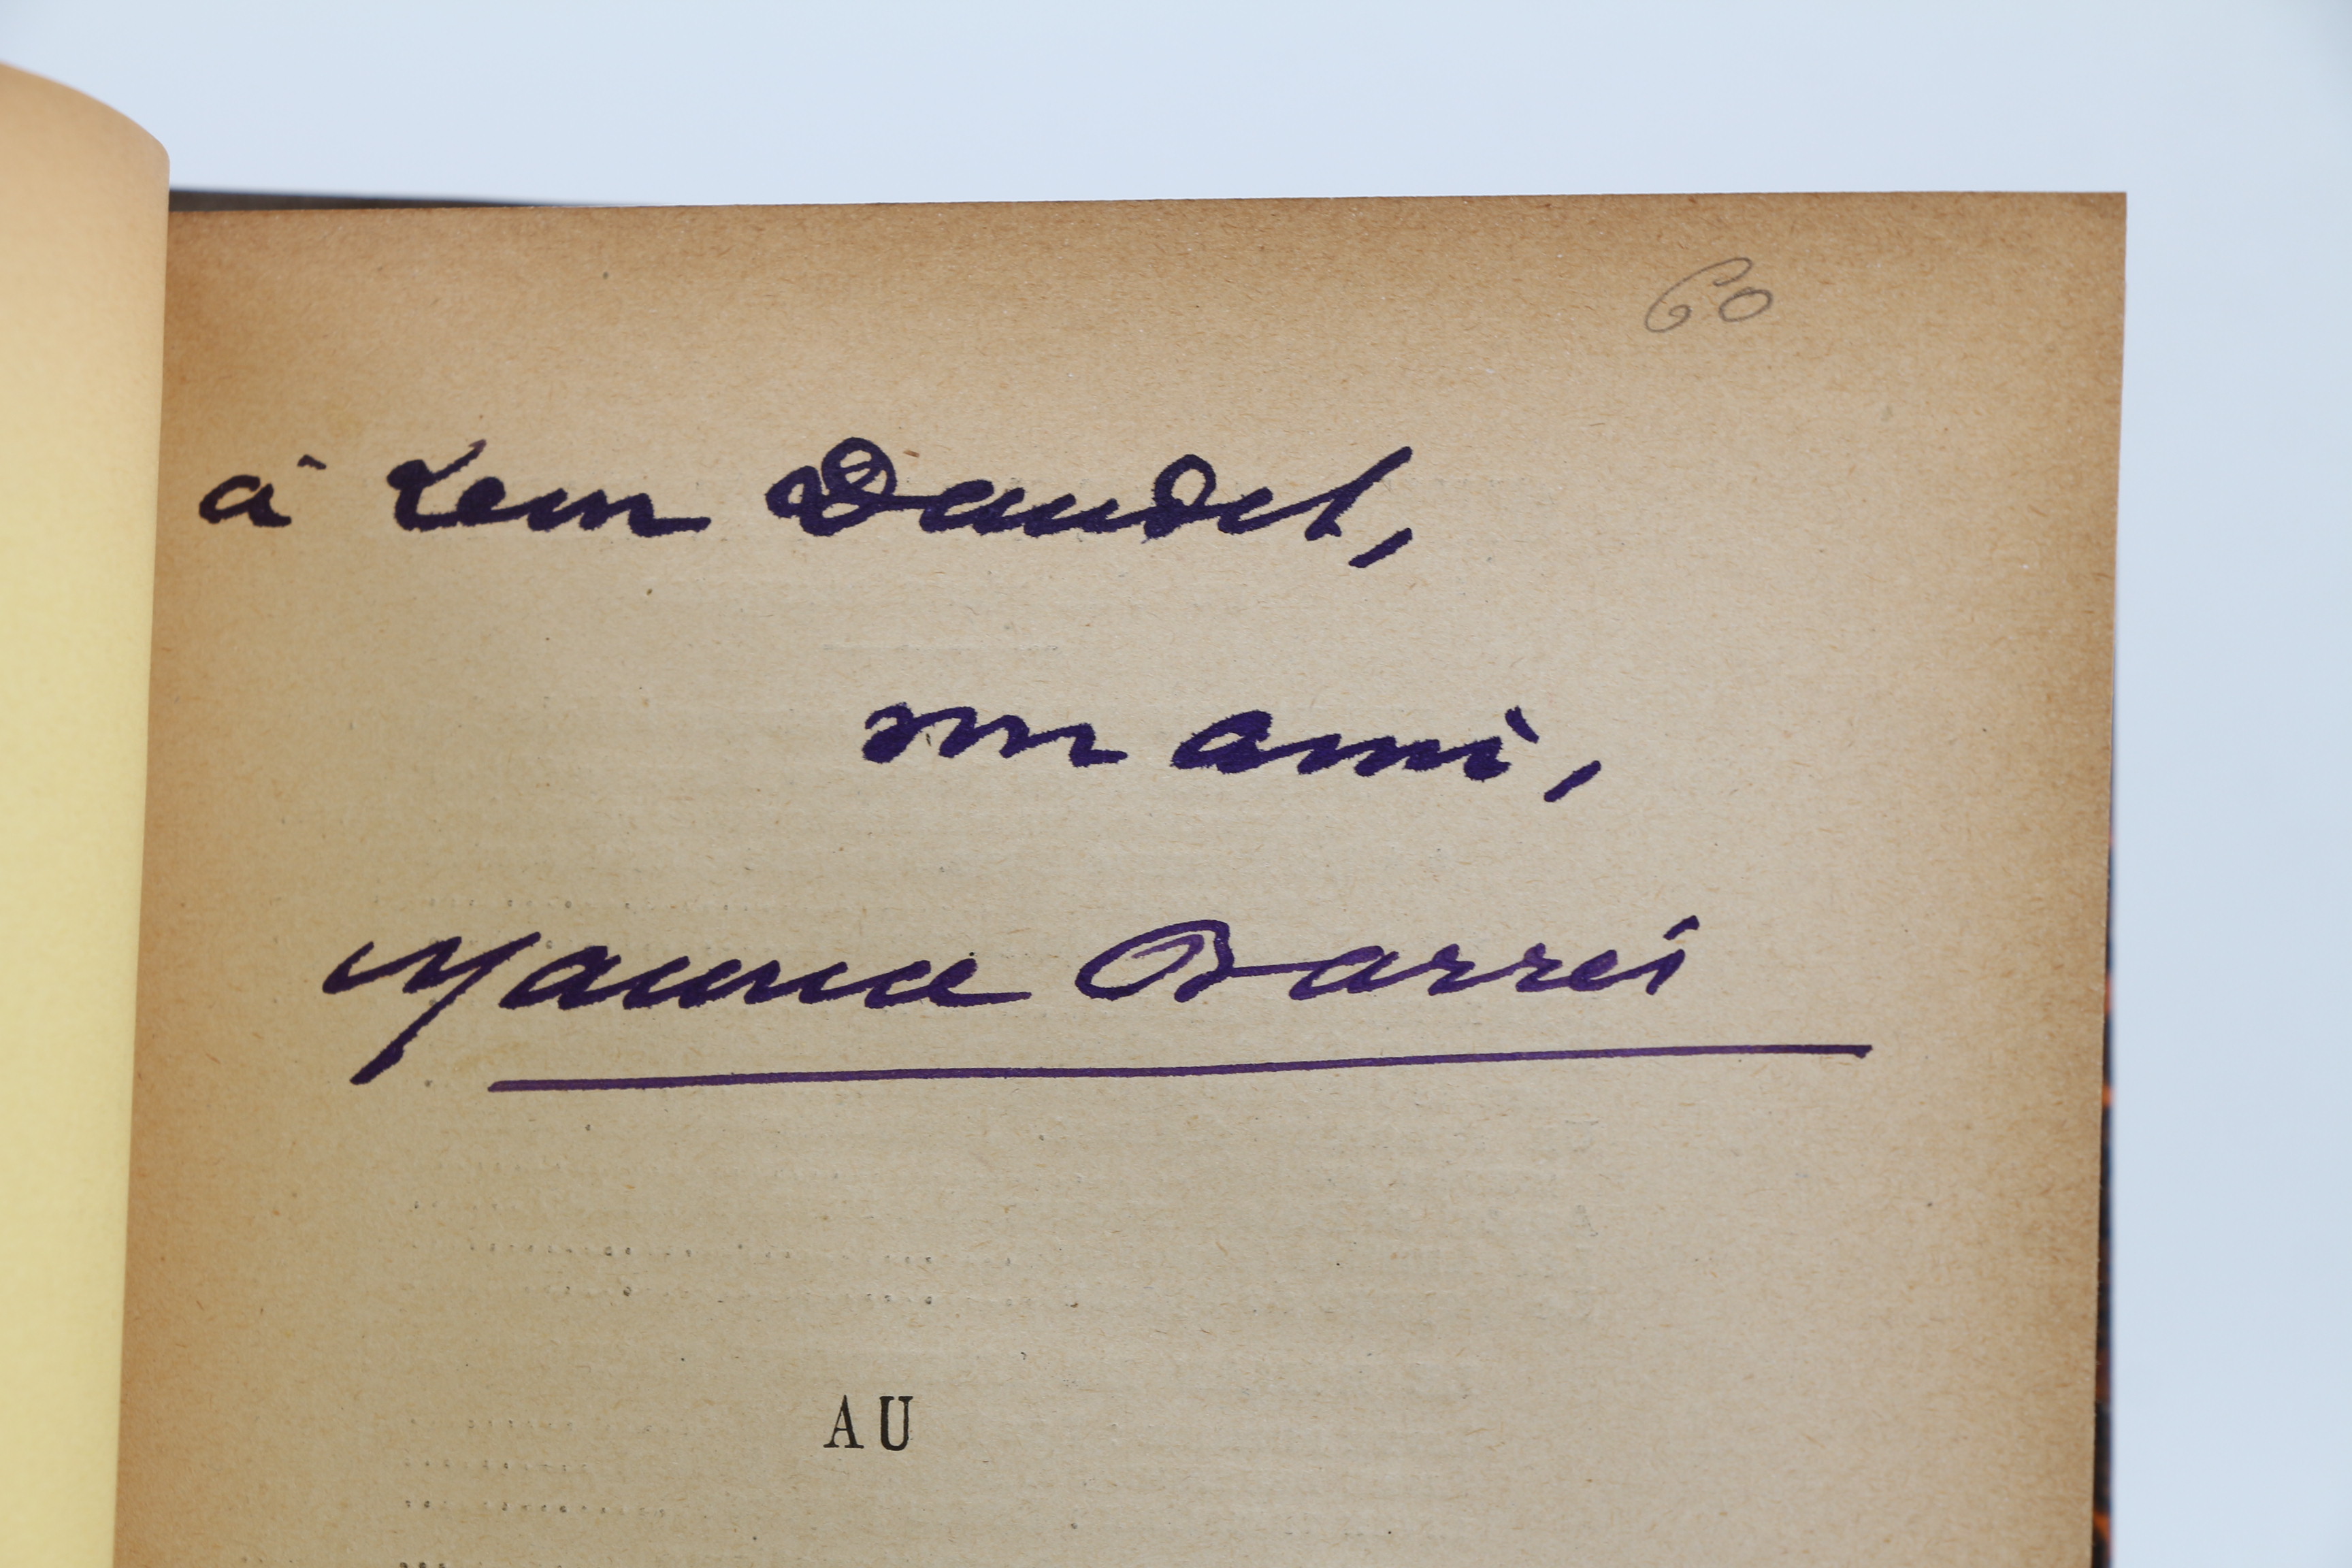 60
à Leon Daudet,
son ami,
Maurice Barrès
AU